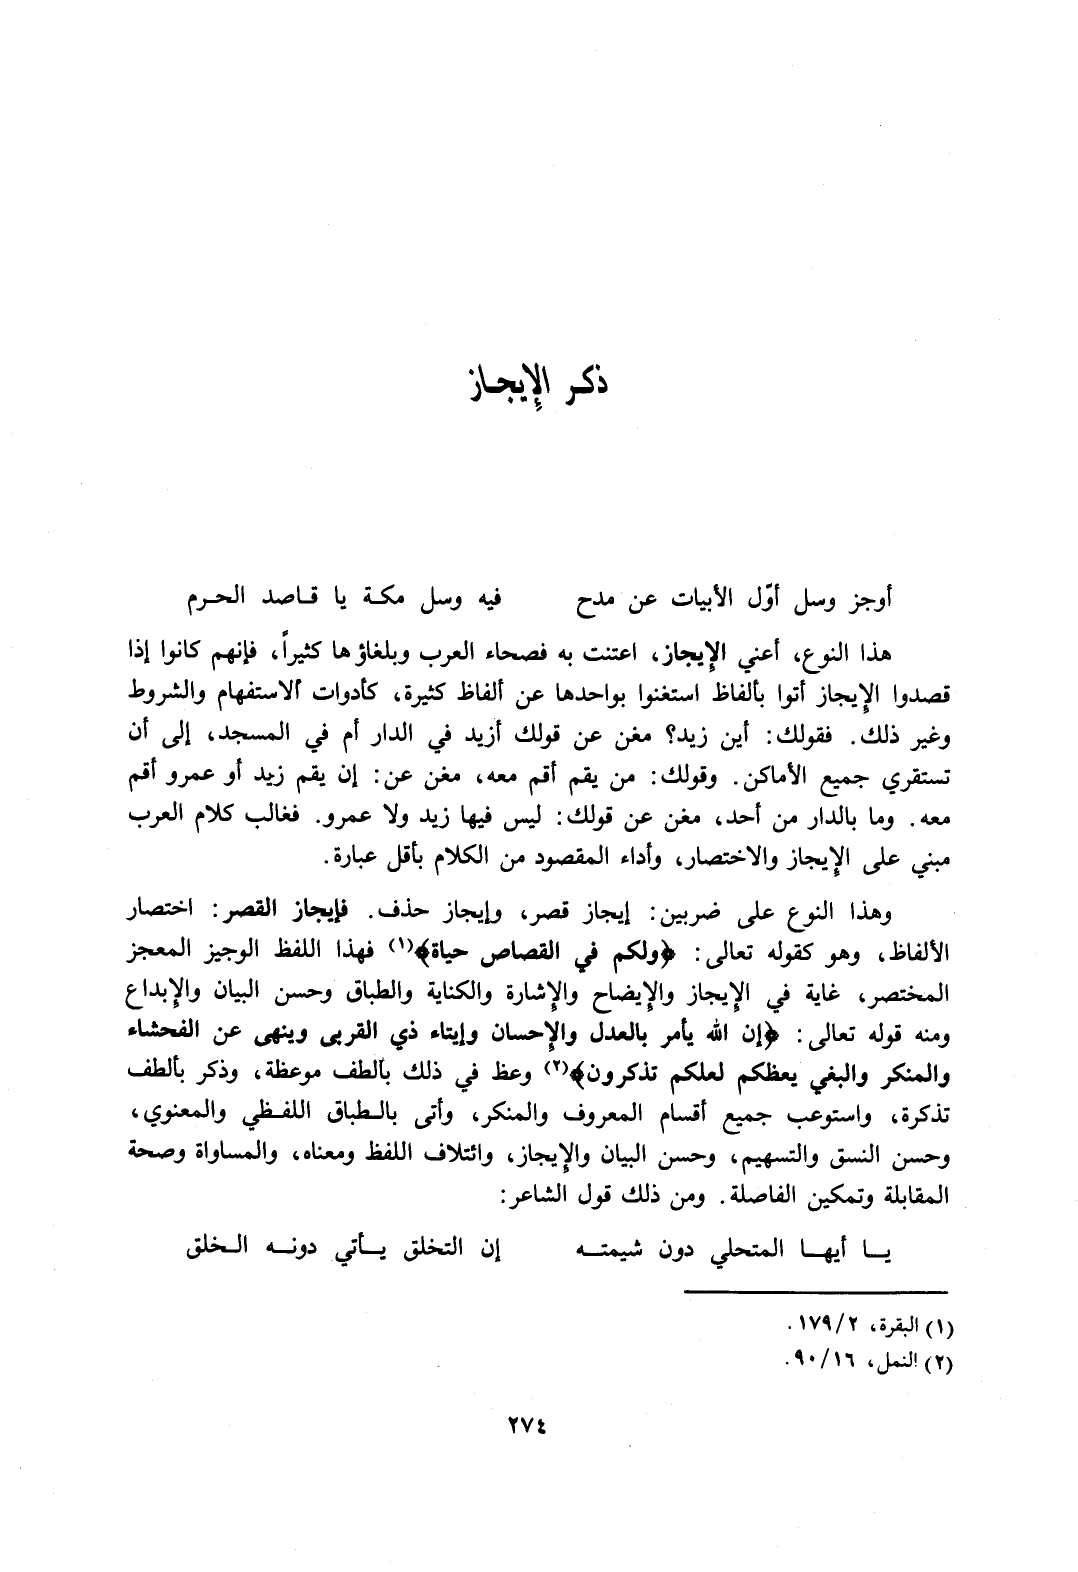 ذكر الإيجاز
أوجز وسل أوّل الأبيات عن مدح فيه وسل مكة يا قاصد الحرم
هذا النوع، أعني الإيجاز، اعتنت به فصحاء العرب وبلغاؤها كثيراً، فإنهم كانوا إذا
قصدوا الإيجاز أتوا بألفاظ استغنوا بواحدها عن ألفاظ كثيرة، كأدوات الاستفهام والشروط
وغير ذلك. فقولك: أين زيد؟ مغن عن قولك أزيد في الدار أم في المسجد، إلى أن
تستقري جميع الأماكن. وقولك: من يقم أقم معه، مغن عن: إن يقم زيد أو عمرو أقم
معه. وما بالدار من أحد، مغن عن قولك: ليس فيها زيد ولا عمرو. فغالب كلام العرب
مبني على الإيجاز والاختصار، وأداء المقصود من الكلام بأقل عبارة.
وهذا النوع على ضربين: إيجاز قصر، وإيجاز حذف. فإيجاز القصر: اختصار
الألفاظ، وهو كقوله تعالى: ﴿ولكم في القصاص حياة﴾(١) فهذا اللفظ الوجيز المعجز
المختصر، غاية في الإيجاز والإيضاح والإشارة والكناية والطباق وحسن البيان والإبداع
ومنه قوله تعالى: ﴿إن الله يأمر بالعدل والإحسان وإيتاء ذي القربى وينهى عن الفحشاء
والمنكر والبغي يعظكم لعلكم تذكرون﴾(٢) وعظ في ذلك بألطف موعظة، وذكر بألطف
تذكرة، واستوعب جميع أقسام المعروف والمنكر، وأتى بالطباق اللفظي والمعنوي،
وحسن النسق والتسهيم، وحسن البيان والإيجاز، وائتلاف اللفظ ومعناه، والمساواة وصحة
المقابلة وتمكين الفاصلة. ومن ذلك قول الشاعر:
يا أيها المتحلي دون شيمته إن التخلق يأتي دونه الخلق
(١) البقرة، ١٧٩/٢.
(٢) النمل، ٩٠/١٦.
٢٧٤